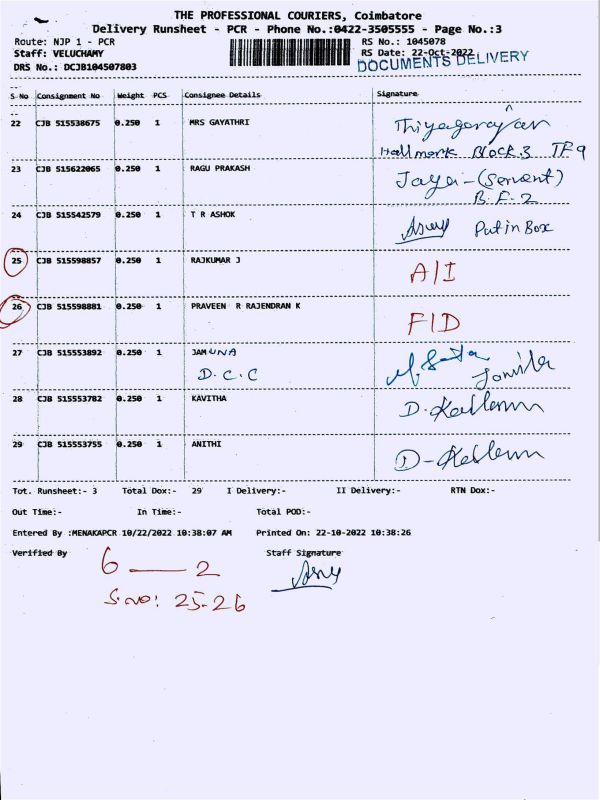 THE PROFESSIONAL COURIERS, Coimbatore
Delivery Runsheet - PCR - Phone No.:0422-3505555 - Page No.:3
Route: NJP 1 - PCR RS No.: 1045078
Staff: VELUCHAMY RS Date: 22-Oct-2022
DRS No.: DCJB104507803 DOCUMENTS DELIVERY
S No Consignment No Weight PCS Consignee Details Signature
22 CJB 515538675 0.250 1 MRS GAYATHRI Thiyagarayan
Hallmark Block.3 TF9
23 CJB 515622065 0.250 1 RAGU PRAKASH Jaya-(Servent)
B.F.2
24 CJB 515542579 0.250 1 T R ASHOK Put in Box
25 CJB 515598857 0.250 1 RAJKUMAR J A/I
26 CJB 515598881 0.250 1 PRAVEEN R RAJENDRAN K F/D
27 CJB 515553892 0.250 1 JAMUNA
D.C.C
28 CJB 515553782 0.250 1 KAVITHA
29 CJB 515553755 0.250 1 ANITHI
Tot. Runsheet:- 3 Total Dox:- 29 I Delivery:- II Delivery:- RTN Dox:-
Out Time:- In Time:- Total POD:-
Entered By :MENAKAPCR 10/22/2022 10:38:07 AM Printed On: 22-10-2022 10:38:26
Verified By Staff Signature
6 — 2
S.no: 25-26